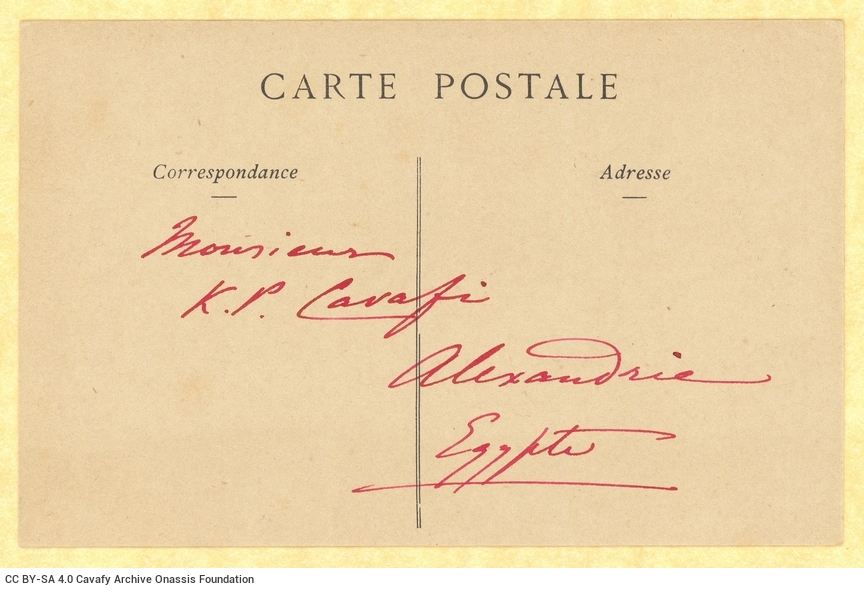 CARTE POSTALE
Correspondance
Adresse
Monsieur
K. P. Cavafi
Alexandrie
Egypte
CC BY-SA 4.0 Cavafy Archive Onassis Foundation